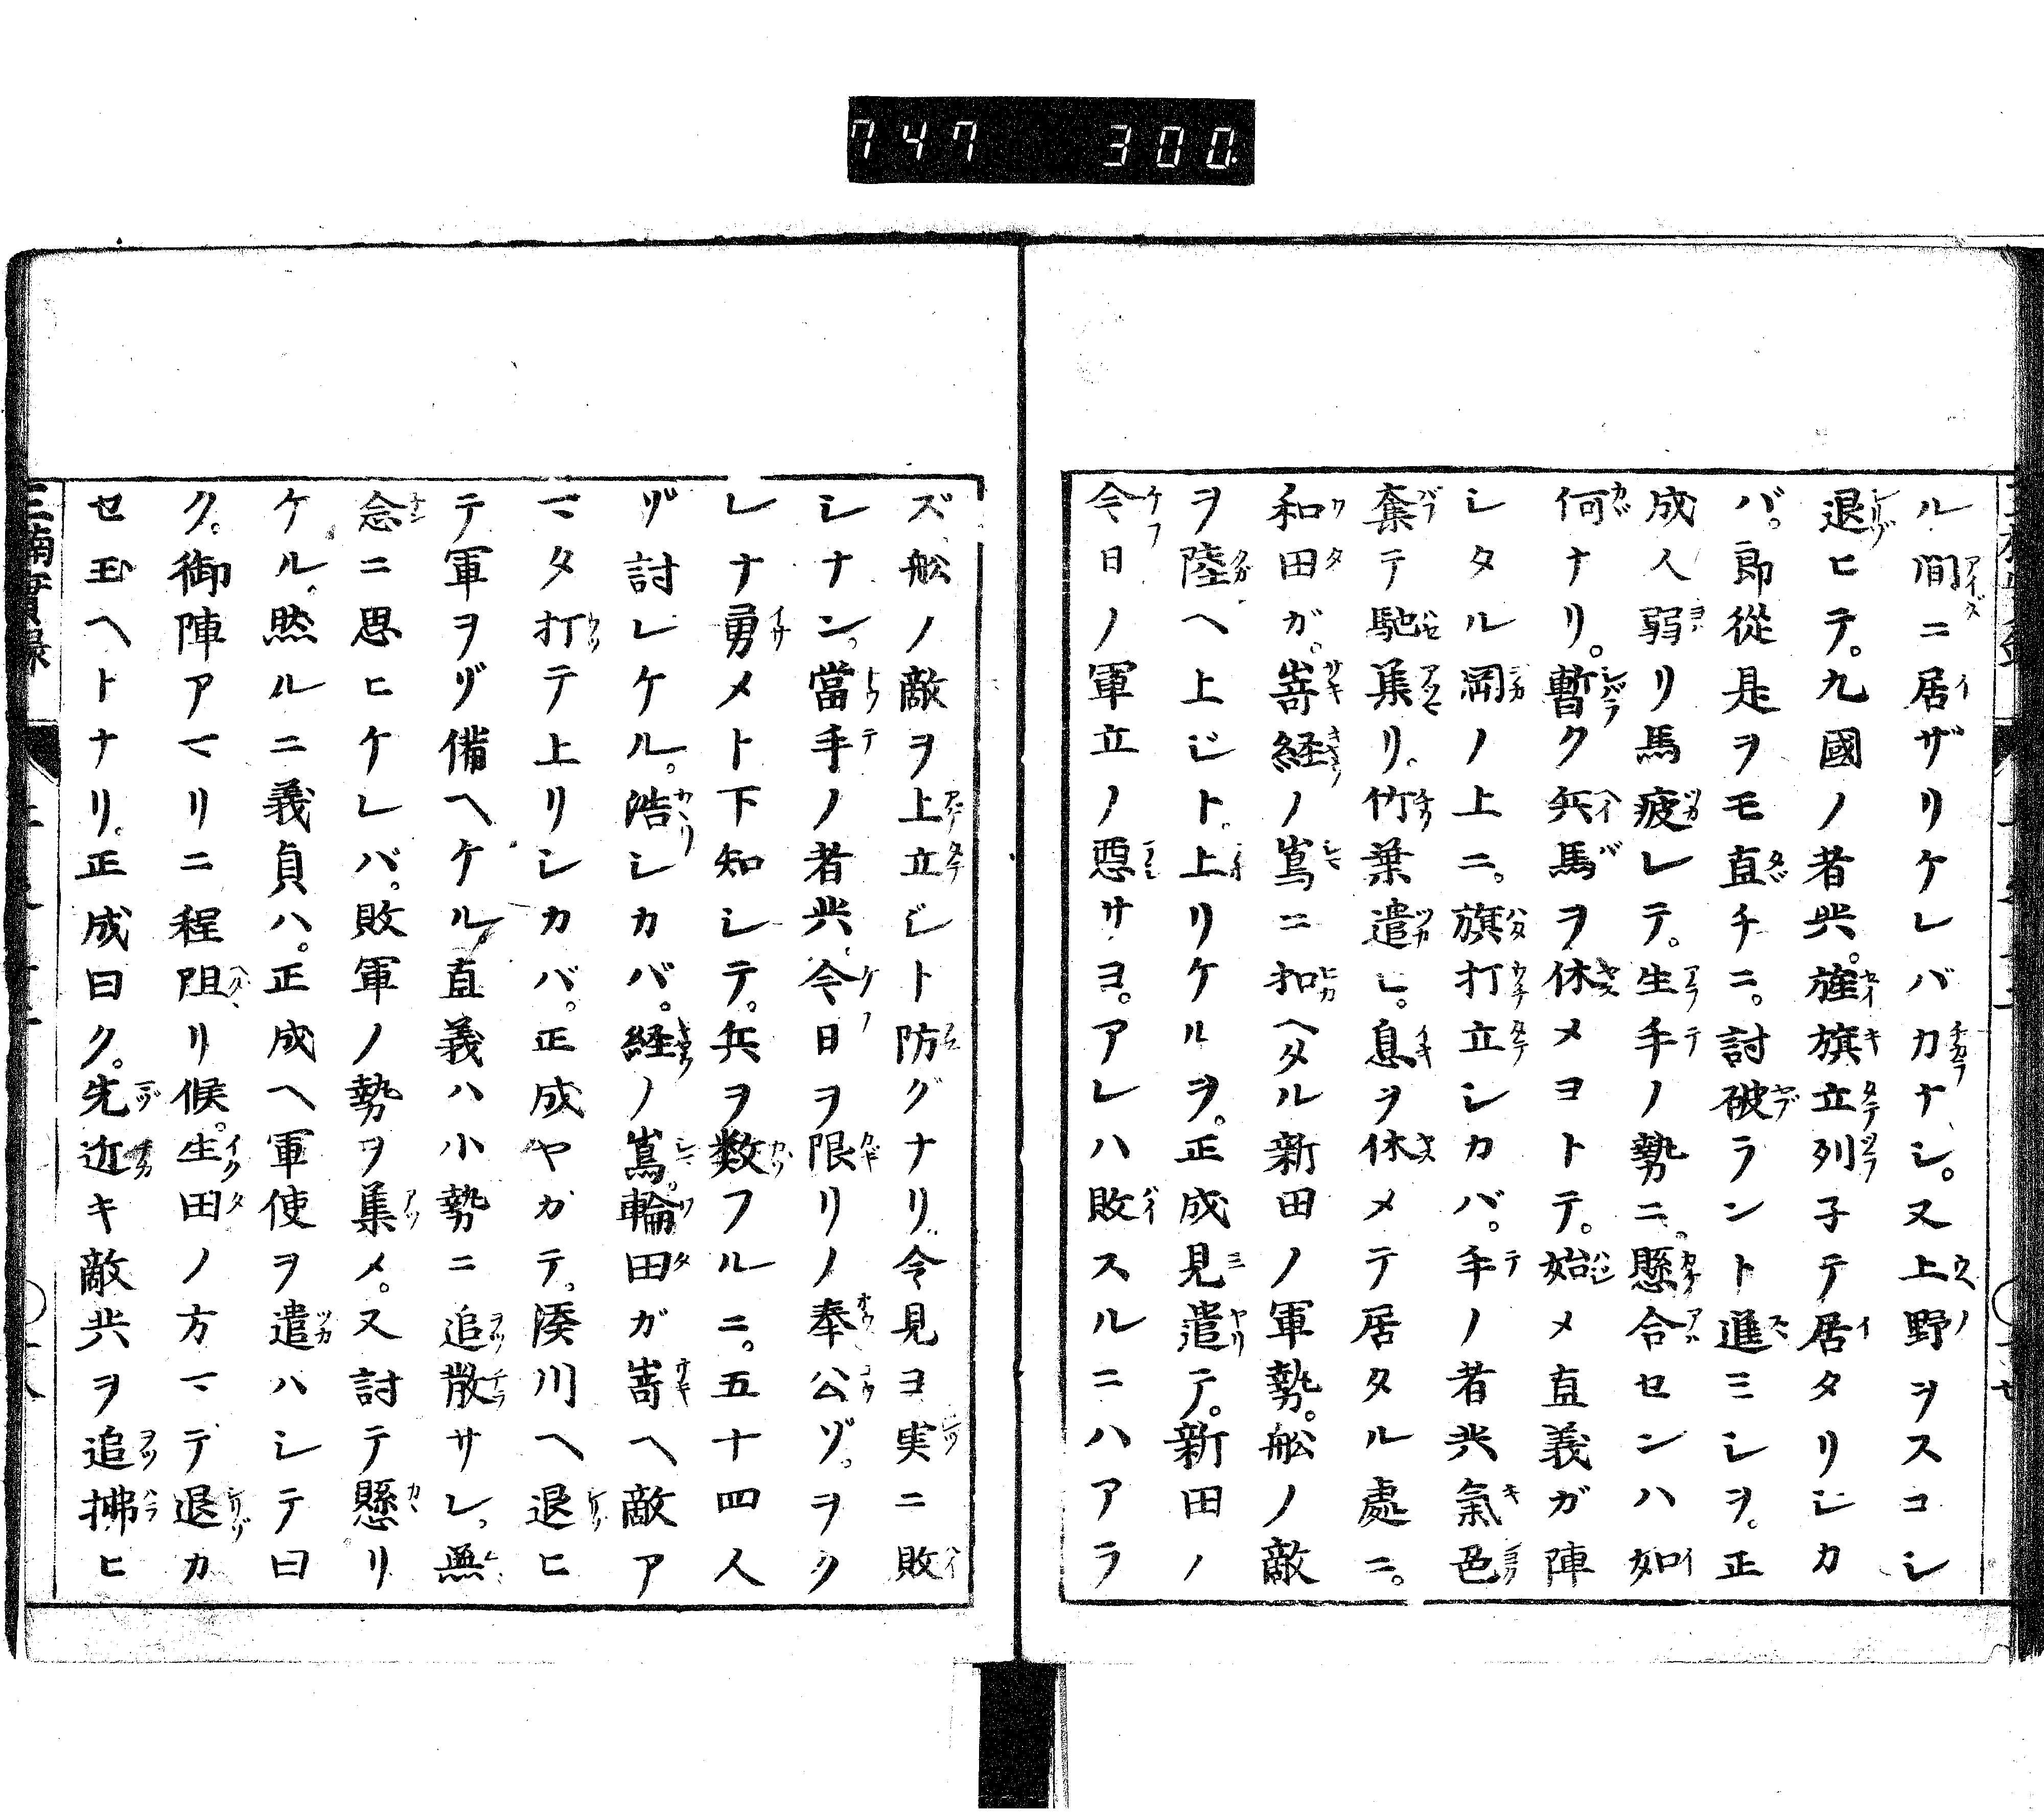 747 300
ル間ニ居ザリケレバカナシ。又上野ヲスコシ
退ヒテ。九國ノ者共。旌旗立列子テ居タリシカ
バ。郎従是ヲモ直チニ。討破ラント進ミシヲ。正
成人弱リ馬疲レテ。生手ノ勢ニ。懸合センハ如
何ナリ。暫ク兵馬ヲ休メヨトテ。始メ直義ガ陣
シタル岡ノ上ニ。旗打立シカバ。手ノ者共氣色
奪テ馳集リ。竹葉遣ヒ。息ヲ休メテ居タル處ニ。
和田ガ。嵜経ノ嶌ニ扣ヘタル新田ノ軍勢。舩ノ敵
ヲ陸ヘ上ジト。上リケルヲ。正成見遣テ。新田ノ
今日ノ軍立ノ惡サヨ。アレハ敗スルニハアラ
ズ。舩ノ敵ヲ上立ジト防グナリ。今見ヨ実ニ敗
シナン。當手ノ者共。今日ヲ限リノ奉公ゾ。ヲク
レナ勇メト下知シテ。兵ヲ数フルニ。五十四人
ゾ討レケル。浩シカバ。経ノ嶌。輪田ガ嵜ヘ敵ア
マタ打テ上リシカバ。正成ヤガテ。湊川ヘ退ヒ
テ軍ヲゾ備ヘケル。直義ハ小勢ニ追散サレ。無
念ニ思ヒケレバ。敗軍ノ勢ヲ集メ。又討テ懸リ
ケル。然ルニ義貞ハ。正成ヘ軍使ヲ遣ハシテ曰
ク。御陣アマリニ程阻リ候。生田ノ方マデ退カ
セ玉ヘトナリ。正成曰ク。先近キ敵共ヲ追拂ヒ